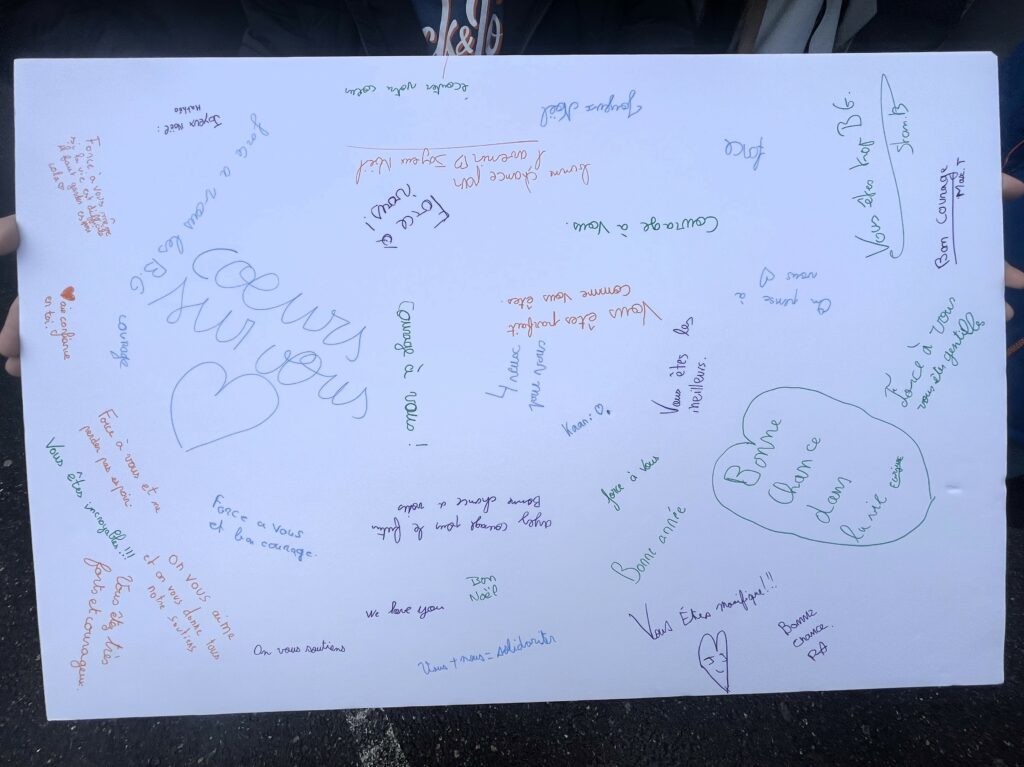 écouter votre cœur
Joyeux Noël :
Mathéo
Joyeux Noël
force
Vous êtes trop B G.
Stam.B
Bon Courage
Mae.T
force a vous les B.G
Force à vous même
si la vie est difficile
il faut garder espoir
bonne chance pour
l'avenir Joyeux Noël
Force à
vous !
Courage à vous.
On pense à
vous
Coeurs
sur vous
aie confiance
en toi.
courage
Courage à vous !
Vous êtes parfait
comme vous êtes.
pour vous
Vous êtes les
meilleurs.
Force à vous
vous êtes gentils
Kaari
Bonne
chance
dans
la vie
Force à vous et ne
perder pas espoir.
Vous êtes incroyables !!!
Force a vous
et bon courage.
ayez courage pour le futur
Bonne chance a vous
force à vous
Bonne année
Vous êtes très
forts et courageux
On vous aime
et on vous donne tous
notre soutiens
Bon
Noël
we love you
On vous soutiens
Vous + nous = solidariter
Vous Êtes manifique!!!
Bonne
chance
RA